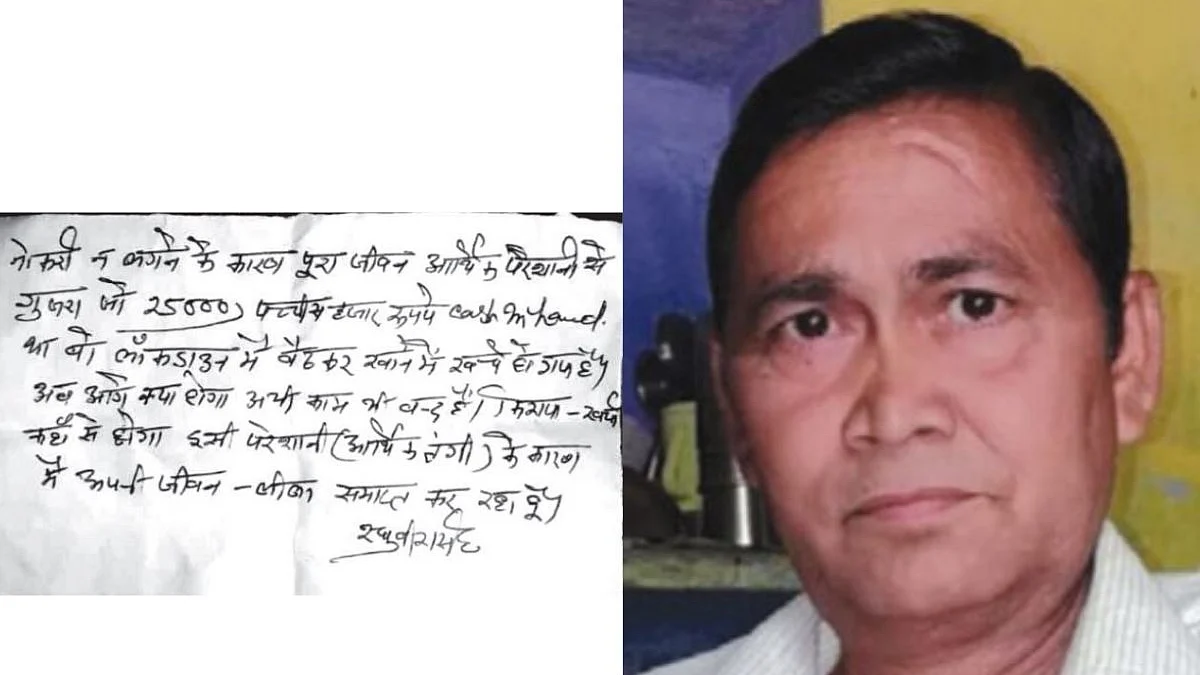 नोकरी न लगने के कारण पूरा जीवन आर्थिक परेशानी से
गुजरा जो 25000) पच्चीस हजार रूपये cash in hand.
था वो लॉकडाउन में बैठकर खाने में खर्च हो गए है।
अब आगे क्या होगा अभी काम भी बन्द है। किराया - खर्चा
कहाँ से होगा इसी परेशानी (आर्थिक तंगी) के कारण
मैं अपनी जीवन - लीला समाप्त कर रहा हूँ।
रघुवीर सिंह